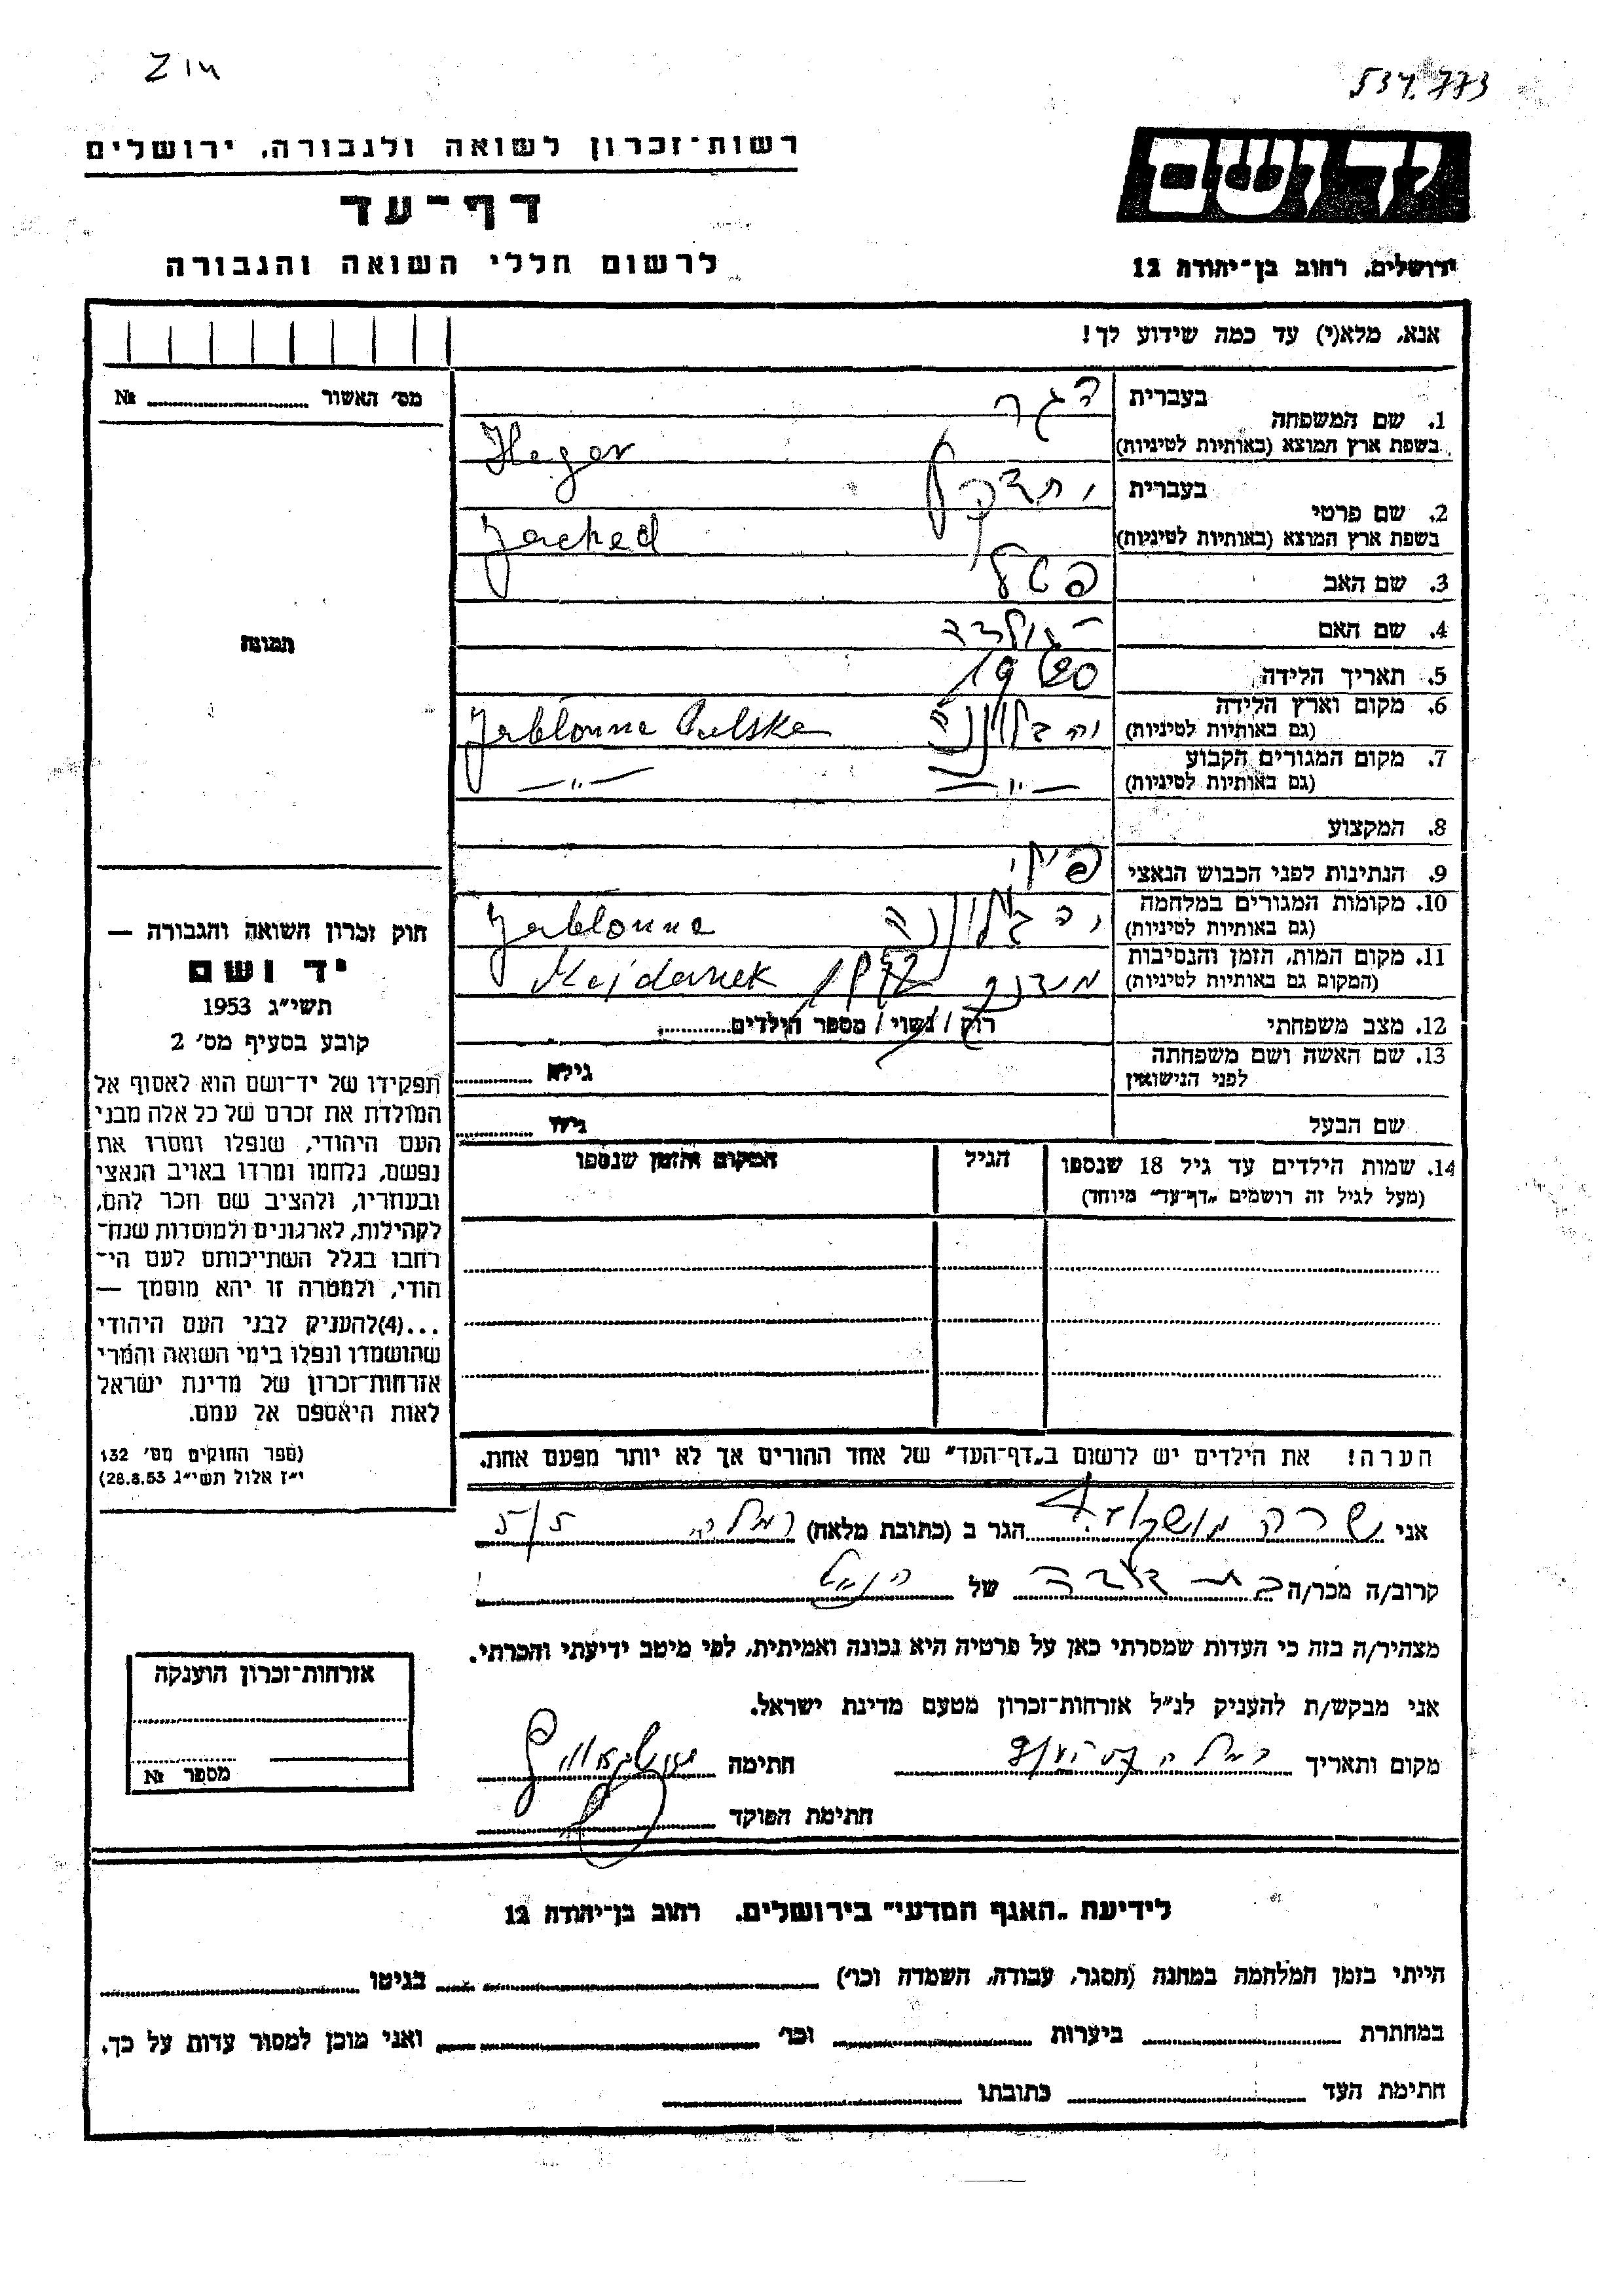 Z 14
534.773
רשות־זכרון לשואה ולגבורה, ירושלים
דף־עד
לרשום חללי השואה והגבורה
ידושם
ירושלים, רחוב בן־יהודה 12
אנא, מלא(י) עד כמה שידוע לך!
מס׳ האשור № 
תמונה
חוק זכרון השואה והגבורה —
יד ושם
תשי״ג 1953
קובע בסעיף מס׳ 2
תפקידו של יד־ושם הוא לאסוף אל
המולדת את זכרם של כל אלה מבני
העם היהודי, שנפלו ומסרו את
נפשם, נלחמו ומרדו באויב הנאצי
ובעוזריו, ולהציב שם וזכר להם,
לקהילות, לארגונים ולמוסדות שנח־
רחבו בגלל השתייכותם לעם הי־
הודי, ולמטרה זו יהא מוסמך —
...(4)להעניק לבני העם היהודי
שהושמדו ונפלו בימי השואה והמרי
אזרחות־זכרון של מדינת ישראל
לאות היאספם אל עמם.
(ספר החוקים מס׳ 132
י״ז אלול תשי״ג 28.8.53)
1. שם המשפחה
בעברית הגר
בשפת ארץ המוצא (באותיות לטיניות) Heger
2. שם פרטי
בעברית
בשפת ארץ המוצא (באותיות לטיניות) Jached
3. שם האב
4. שם האם
5. תאריך הלידה 1920
6. מקום וארץ הלידה
(גם באותיות לטיניות) יהבלונה Jeblonna Pulska
7. מקום המגורים הקבוע
(גם באותיות לטיניות) —״— —״—
8. המקצוע
9. הנתינות לפני הכבוש הנאצי
10. מקומות המגורים במלחמה
(גם באותיות לטיניות) יבלונה Jeblonna
11. מקום המות, הזמן והנסיבות
(המקום גם באותיות לטיניות) מידנק 1942 Majdanek
12. מצב משפחתי רוק / נשוי / מספר הילדים
13. שם האשה ושם משפחתה
לפני הנישואין גילא
שם הבעל גילו
14. שמות הילדים עד גיל 18 שנספו הגיל המקום והזמן שנספו
(מעל לגיל זה רושמים „דף־עד״ מיוחד)
הערה! את הילדים יש לרשום ב„דף־העד״ של אחד ההורים אך לא יותר מפעם אחת.
אני שרה הגר ב (כתובת מלאה) רמלה 5/5
קרוב/ה מכר/ה של
מצהיר/ה בזה כי העדות שמסרתי כאן על פרטיה היא נכונה ואמיתית, לפי מיטב ידיעתי והכרתי.
אני מבקש/ת להעניק לנ״ל אזרחות־זכרון מטעם מדינת ישראל.
מקום ותאריך רמלה חתימה
חתימת הפוקד
אזרחות־זכרון הוענקה
מספר №
לידיעת „האגף המדעי״ בירושלים, רחוב בן־יהודה 12
הייתי בזמן המלחמה במחנה (הסגר, עבודה, השמדה וכו׳) בגיטו
במחתרת ביערות וכו׳ ואני מוכן למסור עדות על כך.
חתימת העד כתובתו